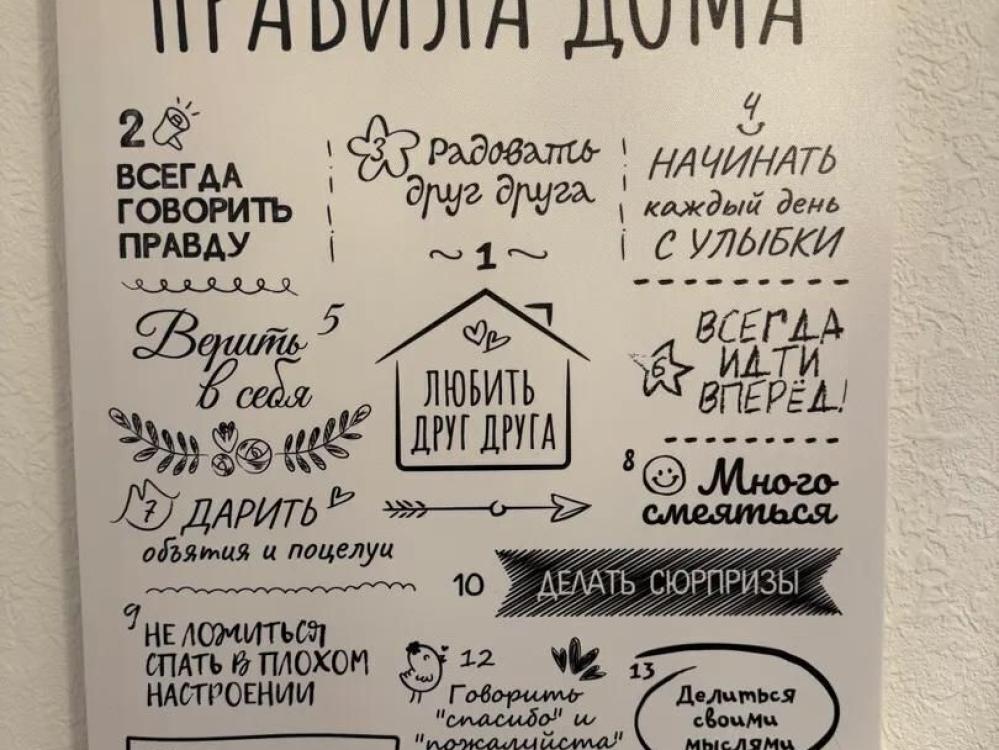 ПРАВИЛА ДОМА
2
ВСЕГДА
ГОВОРИТЬ
ПРАВДУ
3 Радовать
друг друга
4
НАЧИНАТЬ
каждый день
С УЛЫБКИ
1
ЛЮБИТЬ
ДРУГ ДРУГА
Верить 5
в себя
6
ВСЕГДА
ИДТИ
ВПЕРЁД!
7 ДАРИТЬ
объятия и поцелуи
8 Много
смеяться
9
НЕ ЛОЖИТЬСЯ
СПАТЬ В ПЛОХОМ
НАСТРОЕНИИ
10 ДЕЛАТЬ СЮРПРИЗЫ
12
Говорить
"спасибо" и
"пожалуйста"
13
Делиться
своими
мыслями